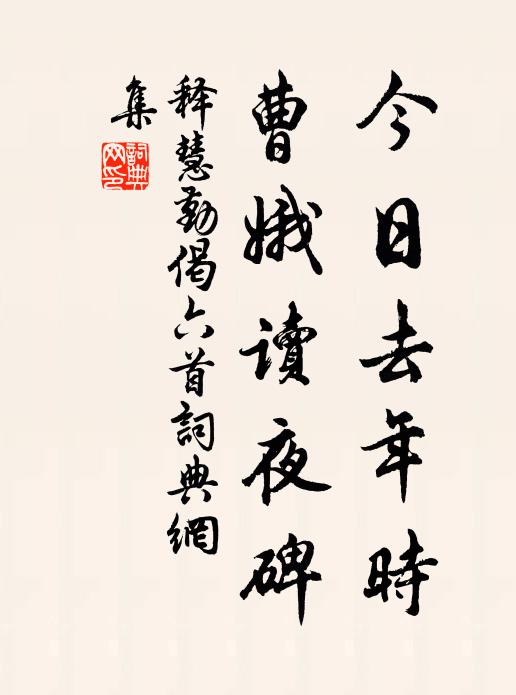 今日去年時
曹娥讀夜碑
释慧勤偈六首詞典網
集
詞典網印